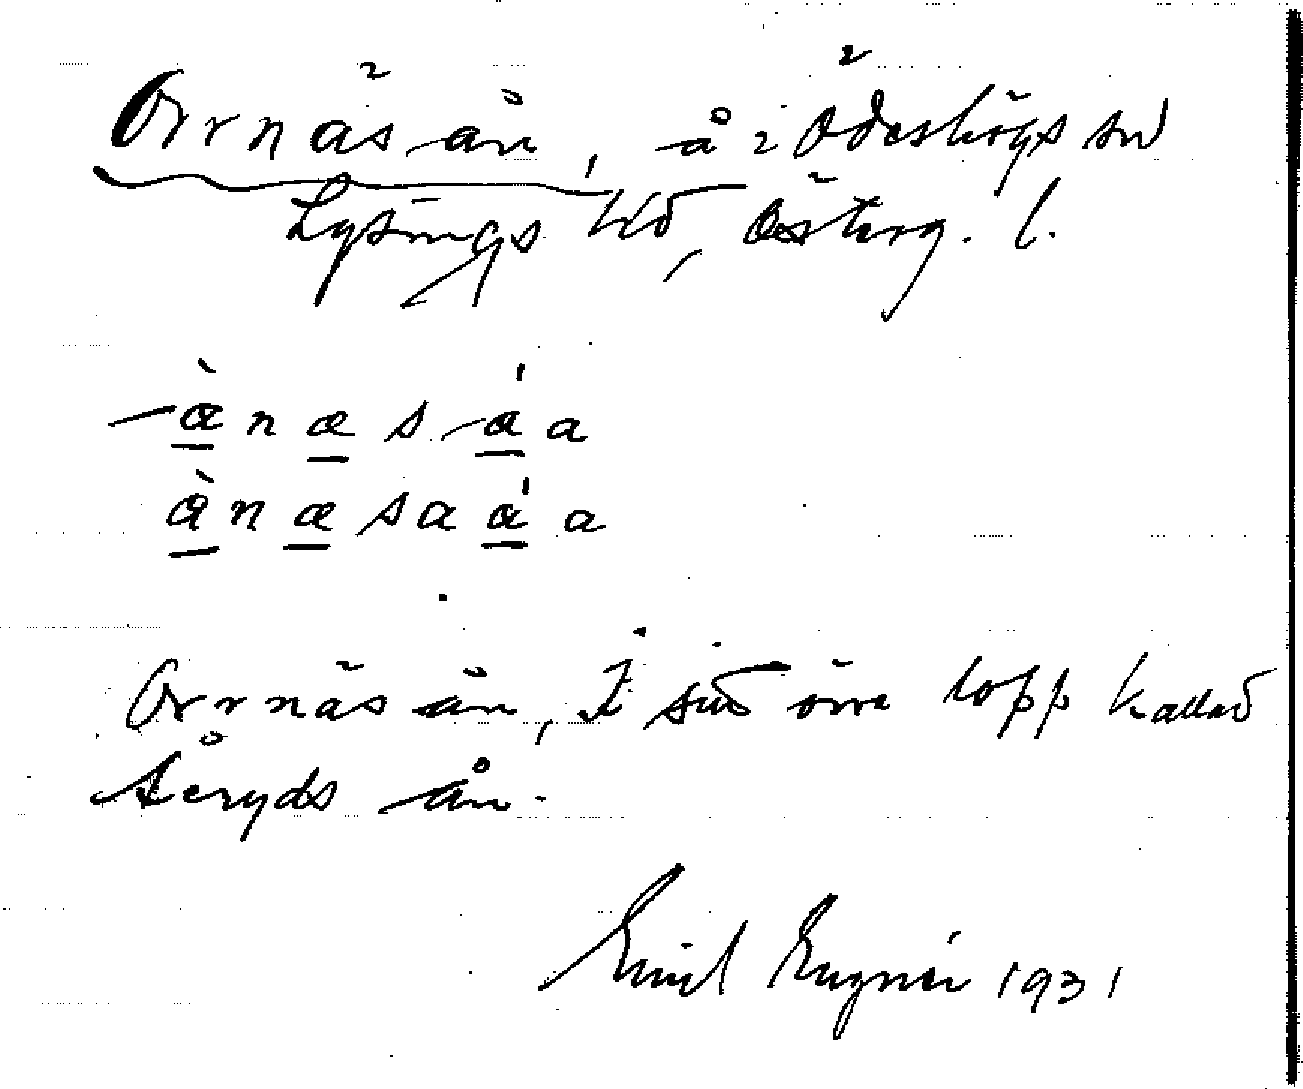 Orrnäs ån, å i Ödeshögs sn
Lysings hd, Österg. l.
-ànæs-áa
ànæsaáa
Orrnäs ån, I sitt övre lopp kallad
Åeryds ån.
Emil Eugnér 1931